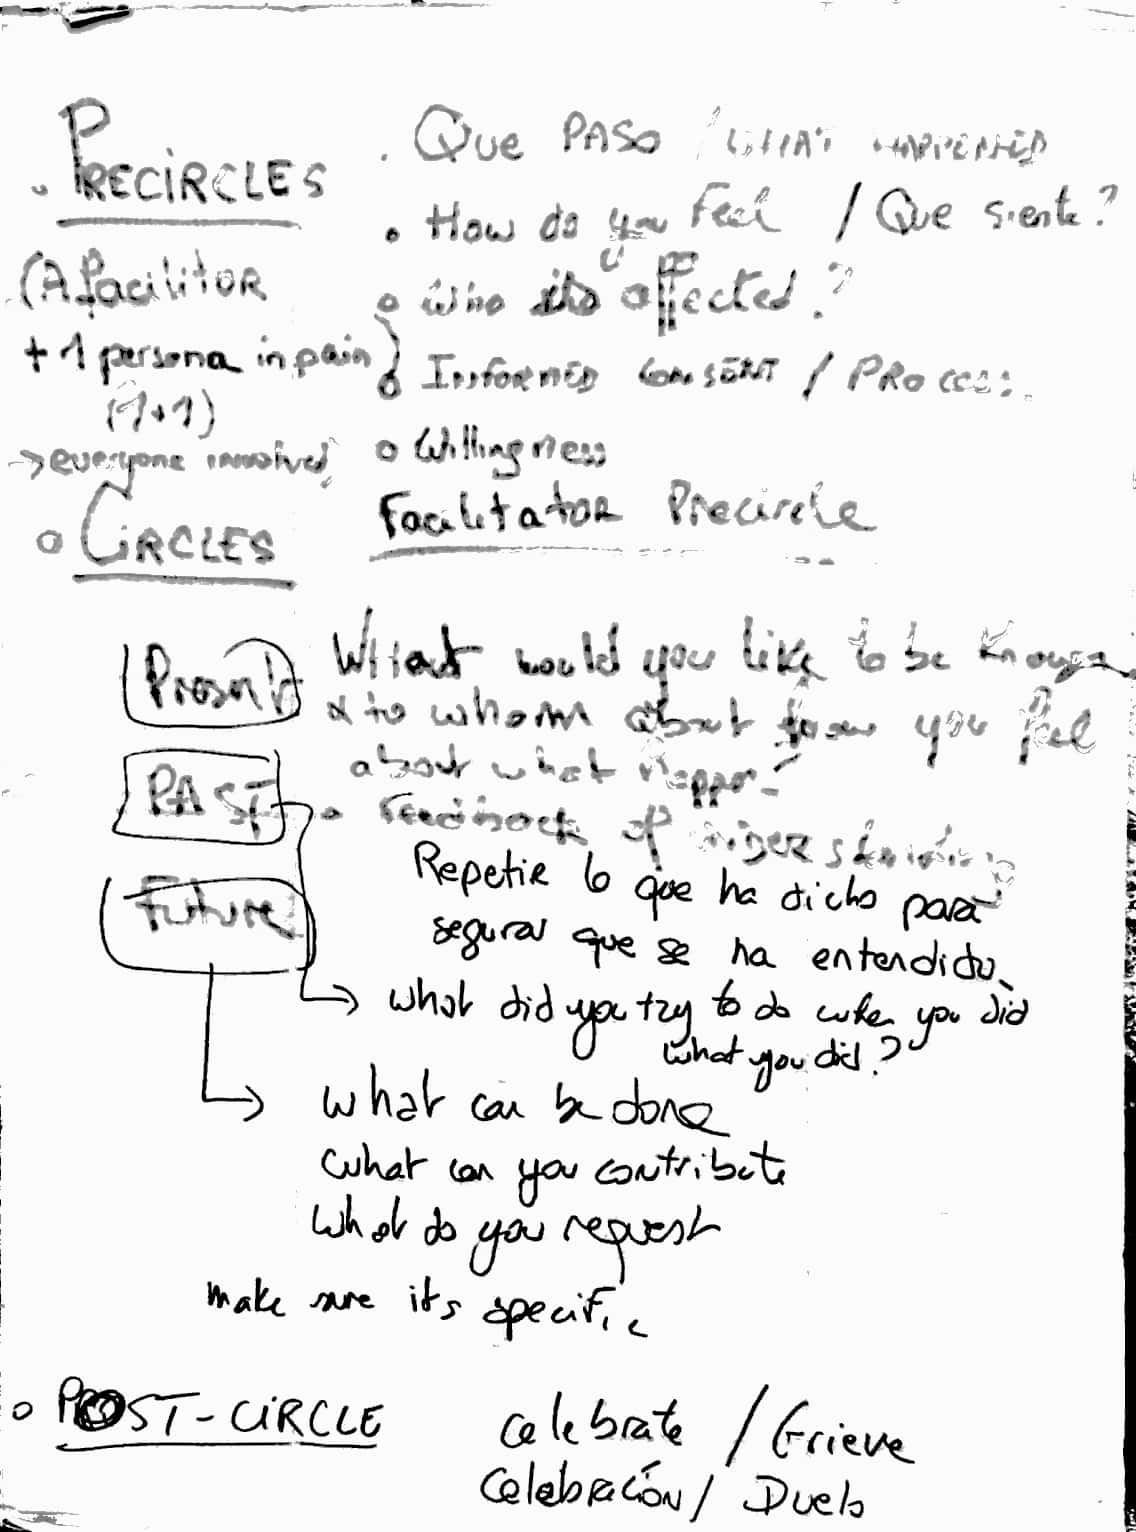 PRECIRCLES
(A facilitor
+ 1 persona in pain
(1+1)
→ everyone involved
. Que PASO / WHAT HAPPENED
• How do you Feel / Que siente?
o Who is affected?
o INFORMED CONSENT / PROCESS.
o Willingness
Facilitator Precircle
o CIRCLES
Present
What would you like to be known
& to whom about how you feel
about what
PAST
Feedback of understanding
Repetir lo que ha dicho para
segurar que se ha entendido
Future
→ what did you try to do when you did
what you did?
→ what can be done
what can you contribute
what do you request
make sure its specific
o POST-CIRCLE
Celebrate / Grieve
Celebración / Duelo